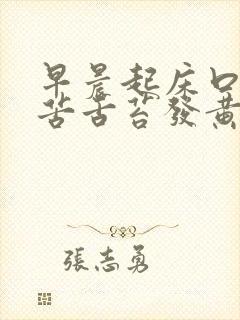 早晨起床口
苦舌苔發黄
張志勇